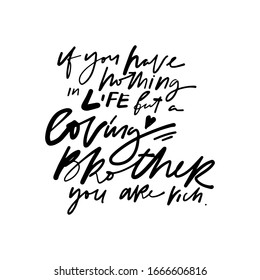 if you have
nothing
in LiFE but a
loving
BRoTHER
you are rich.
shutterstock.com · 1666606816